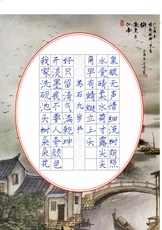 泉眼无声惜细流树阴照
水爱晴柔小荷才露尖尖
角早有蜻蜓立上头
好只留清气满乾坤
开淡墨痕不要人夸颜色
我家洗砚池头树朵朵花